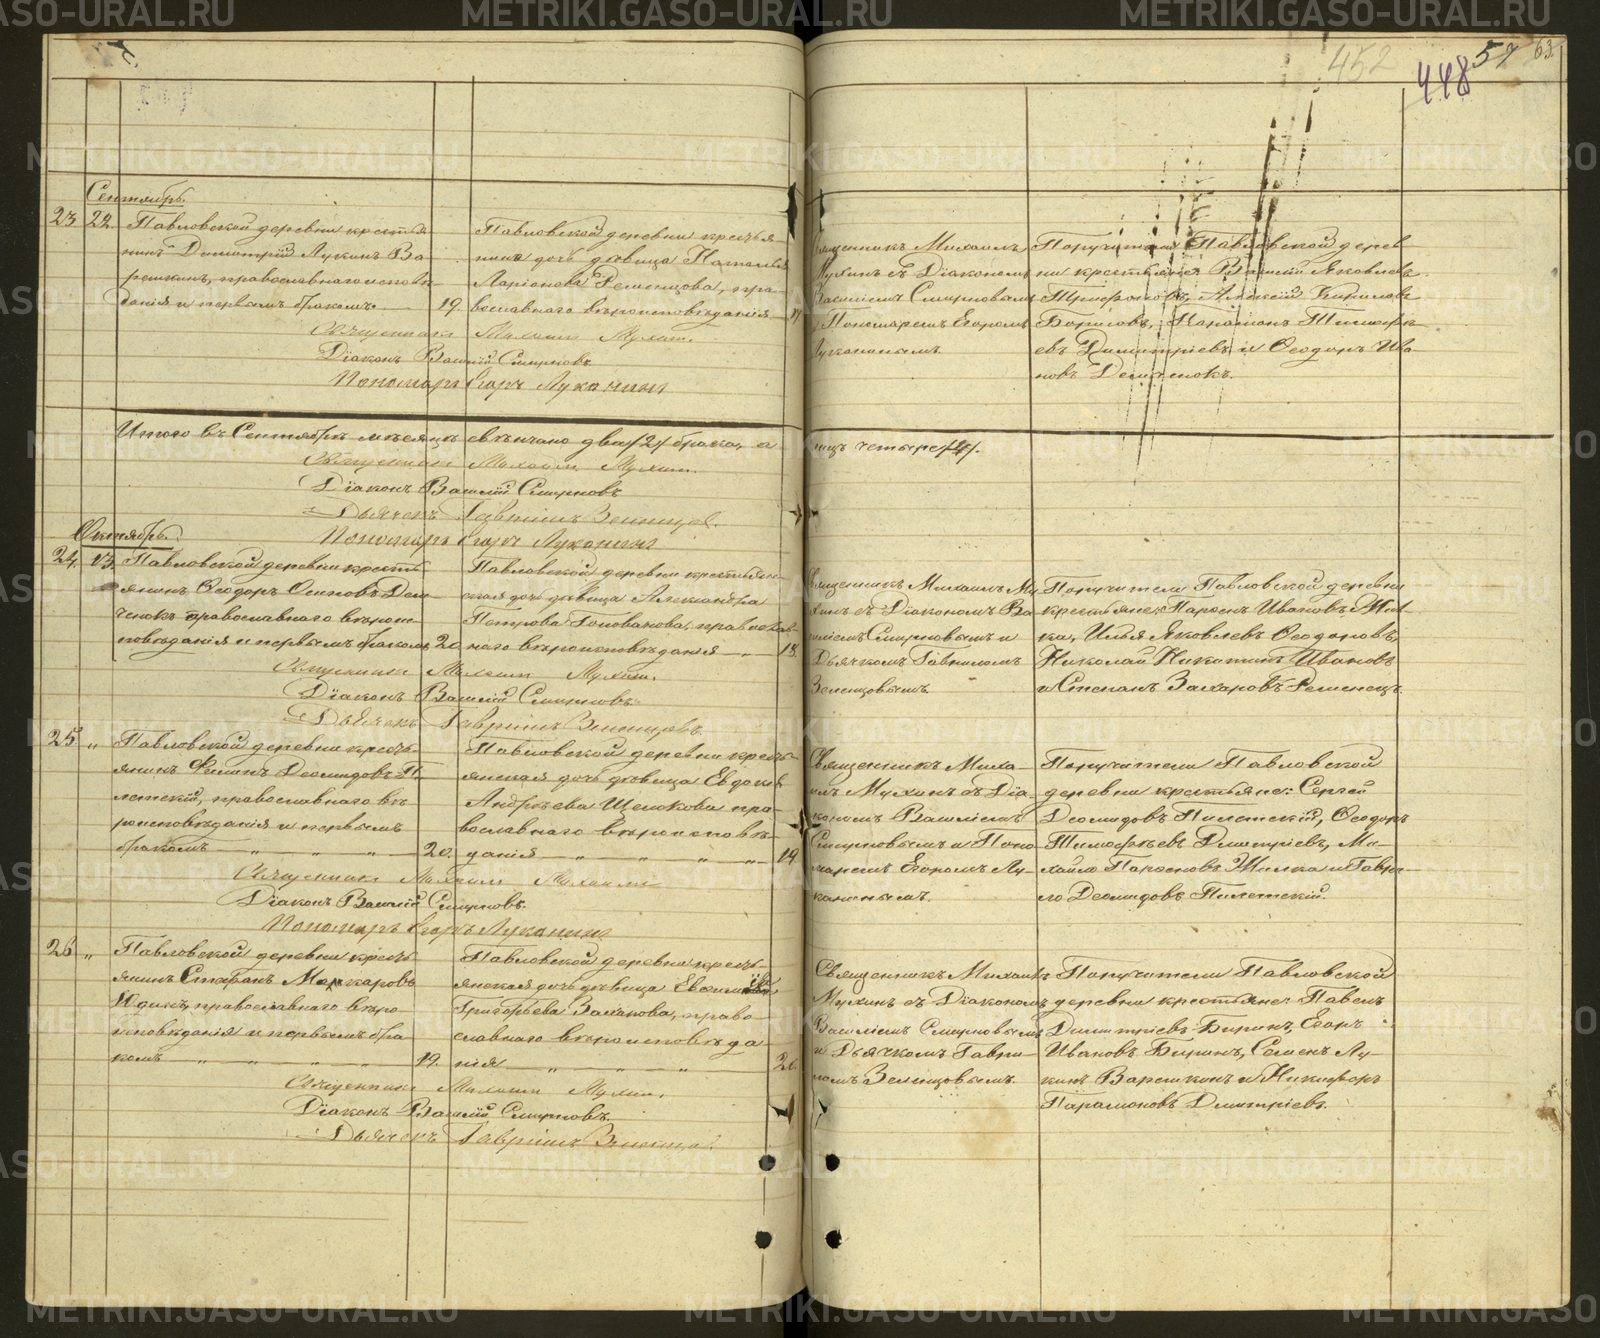 452
448
57
63
Сентябрь.
23 22. Павловской деревни крестья
нинъ Димитрій Лукинъ Ва
решкинъ, православнаго испов
данія и первымъ бракомъ. 19.
Павловской деревни крестья
нина дочь дѣвица Наталья
Ларіонова Ременцова, пра
вославнаго вѣроисповѣданія
Священникъ Михаилъ
Мухинъ съ Діакономъ
Василіемъ Смирновымъ
и Пономаремъ Егоромъ
Луканинымъ.
Поручители Павловской дерев
ни крестьяне: Василій Яковлевъ
Трифоновъ, Алексій Кириловъ
Борисовъ, Тимофе
евъ Димитріевъ и Ѳеодоръ Ива
новъ
Священникъ Михаилъ Мухинъ.
Діаконъ Василій Смирновъ
Пономарь Егоръ Луканинъ
Итого въ Сентябрѣ мѣсяцѣ свѣнчано два /2/ брака, а
лицъ четыре /4/.
Священникъ Михаилъ Мухинъ.
Діаконъ Василій Смирновъ
Дьячекъ Гавріилъ Зеленцовъ.
Пономарь Егоръ Луканинъ
Октябрь.
24. 13. Павловской деревни кресть
янинъ Ѳеодоръ Осиповъ Дем
ченокъ православнаго вѣрои
повѣданія и первымъ бракомъ 20.
Павловской деревни крестьян
ская дочь дѣвица Александра
Петрова Голованова, православ
наго вѣроисповѣданія 18.
Священникъ Михаилъ Му
хинъ съ Діакономъ Ва
силіемъ Смирновымъ и
Дьячкомъ Гавріиломъ
Зеленцовымъ.
Поручители Павловской деревни
крестьяне: Парѳенъ Ивановъ Жил
ка, Илья Яковлевъ Ѳеодоровъ,
Николай Никитинъ Ивановъ
и Степанъ Захаровъ Ременецъ.
Священникъ Михаилъ Мухинъ.
Діаконъ Василій Смирновъ
Дьячекъ Гавріилъ Зеленцовъ.
25 " Павловской деревни кресть
янинъ Филипъ Деомидовъ П
летскій, православнаго вѣ
роисповѣданія и первымъ
бракомъ " " " 20.
Павловской деревни кресть
янская дочь дѣвица Евдокія
Андрѣева Щелокова пра
вославнаго вѣроисповѣ
данія " " " " 19
Священникъ Миха
илъ Мухинъ съ Діа
кономъ Василіемъ
Смирновымъ и Поно
маремъ Егоромъ Лу
канинымъ.
Поручители Павловской
деревни крестьяне: Сергей
Деомидовъ Пилетскій, Ѳеодоръ
Тимофѣевъ Дмитріевъ, Ми
хайло Парѳеновъ Жилка и Гаври
ло Деомидовъ Пилетскій.
Священникъ Михаилъ Мухинъ
Діаконъ Василій Смирновъ.
Пономарь Егоръ Луканинъ
26 " Павловской деревни кресть
янинъ Стефанъ Макаровъ
Юдинъ, православнаго вѣро
исповѣданія и первымъ бра
комъ " " " " 19.
Павловской деревни кресть
янская дочь дѣвица
Григорьева Заханова, право
славнаго вѣроисповѣда
нія " " " 20.
Священникъ Михаилъ
Мухинъ съ Діакономъ
Василіемъ Смирновымъ
и Дьячкомъ Гаврі
ломъ Зеленцовымъ.
Поручители Павловской
деревни крестьяне: Павелъ
Димитріевъ Биринъ, Егоръ
Ивановъ Биринъ, Семенъ Лу
кинъ Варешкинъ и Никифоръ
Парамоновъ Дмитріевъ.
Священникъ Михаилъ Мухинъ.
Діаконъ Василій Смирновъ.
Дьячекъ Гавріилъ Зеленцовъ
METRIKI.GASO-URAL.RU